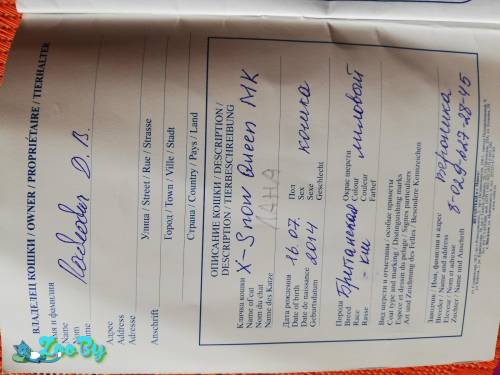 ВЛАДЕЛЕЦ КОШКИ / OWNER / PROPRIÉTAIRE / TIERHALTER
Имя и фамилия
Name
Nom
Name
Д. В.
Адрес
Address
Adresse
Anschrift
Улица / Street / Rue / Strasse
Город / Town / Ville / Stadt
Страна / Country / Pays / Land
ОПИСАНИЕ КОШКИ / DESCRIPTION /
DESCRIPTION / TIERBESCHREIBUNG
Кличка кошки X-Snow Queen MK
Name of cat
Nom du chat ЛАНА
Name des Katze
Дата рождения 16.07.
Date of birth 2014
Date de naissance
Geburtsdatum
Пол кошка
Sex
Sexe
Geschlecht
Порода Британская
Breed - кш
Race
Rasse
Окрас шерсти лиловый
Colour
Couleur
Farbe
Вид шерсти и отметины / особые приметы
Coat type and marking / Distinguishing marks
Espece et dessin du pelage / Signes particuliers
Art und Zeichnung des Felles / Besondere Kennzeichen
Заводчик / Имя, фамилия и адрес Вероника
Breeder / Name and address 8-029-127-28-45
Eleveur / Nom et adresse
Zuchter / Name und Anschrift
ZooBy